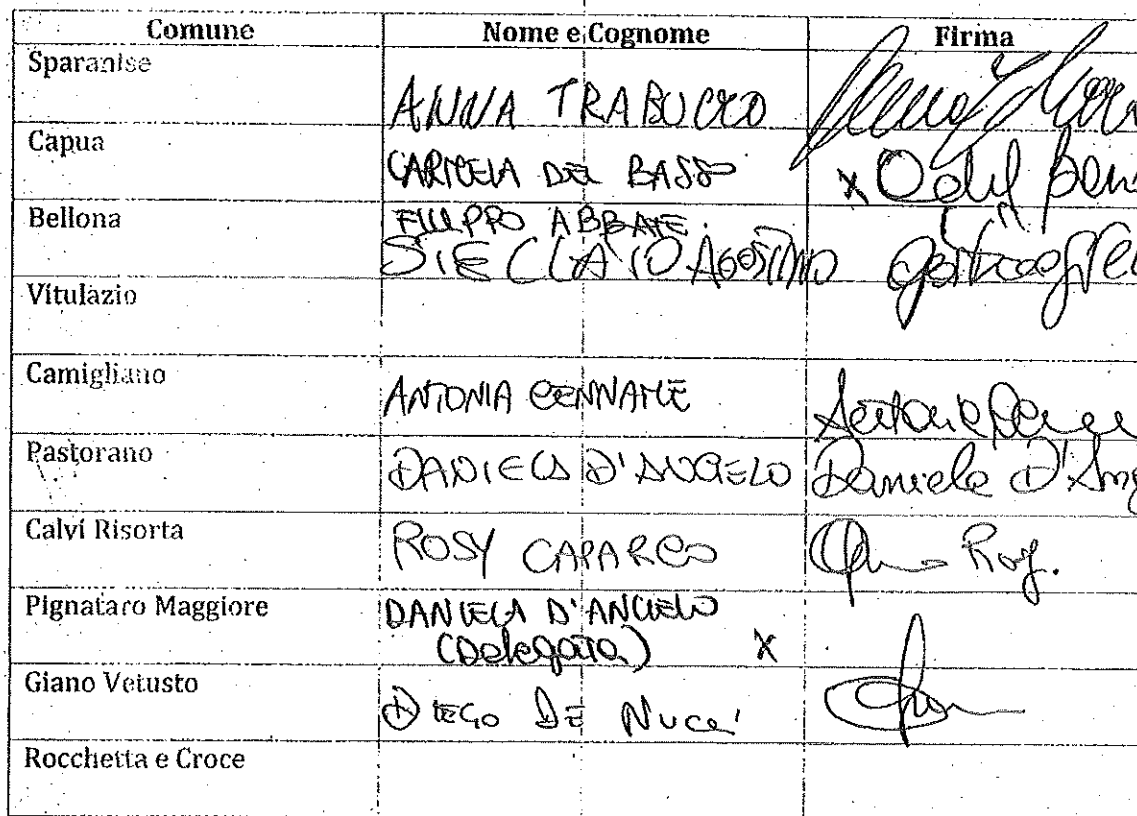 Comune Nome e Cognome Firma
Sparanise
ANNA TRABUCCO
Capua
CARMELA DEL BASSO x
Bellona
FILIPPO ABBATE
AGOSTINO
Vitulazio
Camigliano
ANTONIA CENNAME
Pastorano
DANIELA D'ANGELO Daniela D'Ang
Calvi Risorta
ROSY CAPARCO Rosy.
Pignataro Maggiore
DANIELA D'ANGELO
(Delegata) X
Giano Vetusto
DIEGO DE Nucci
Rocchetta e Croce